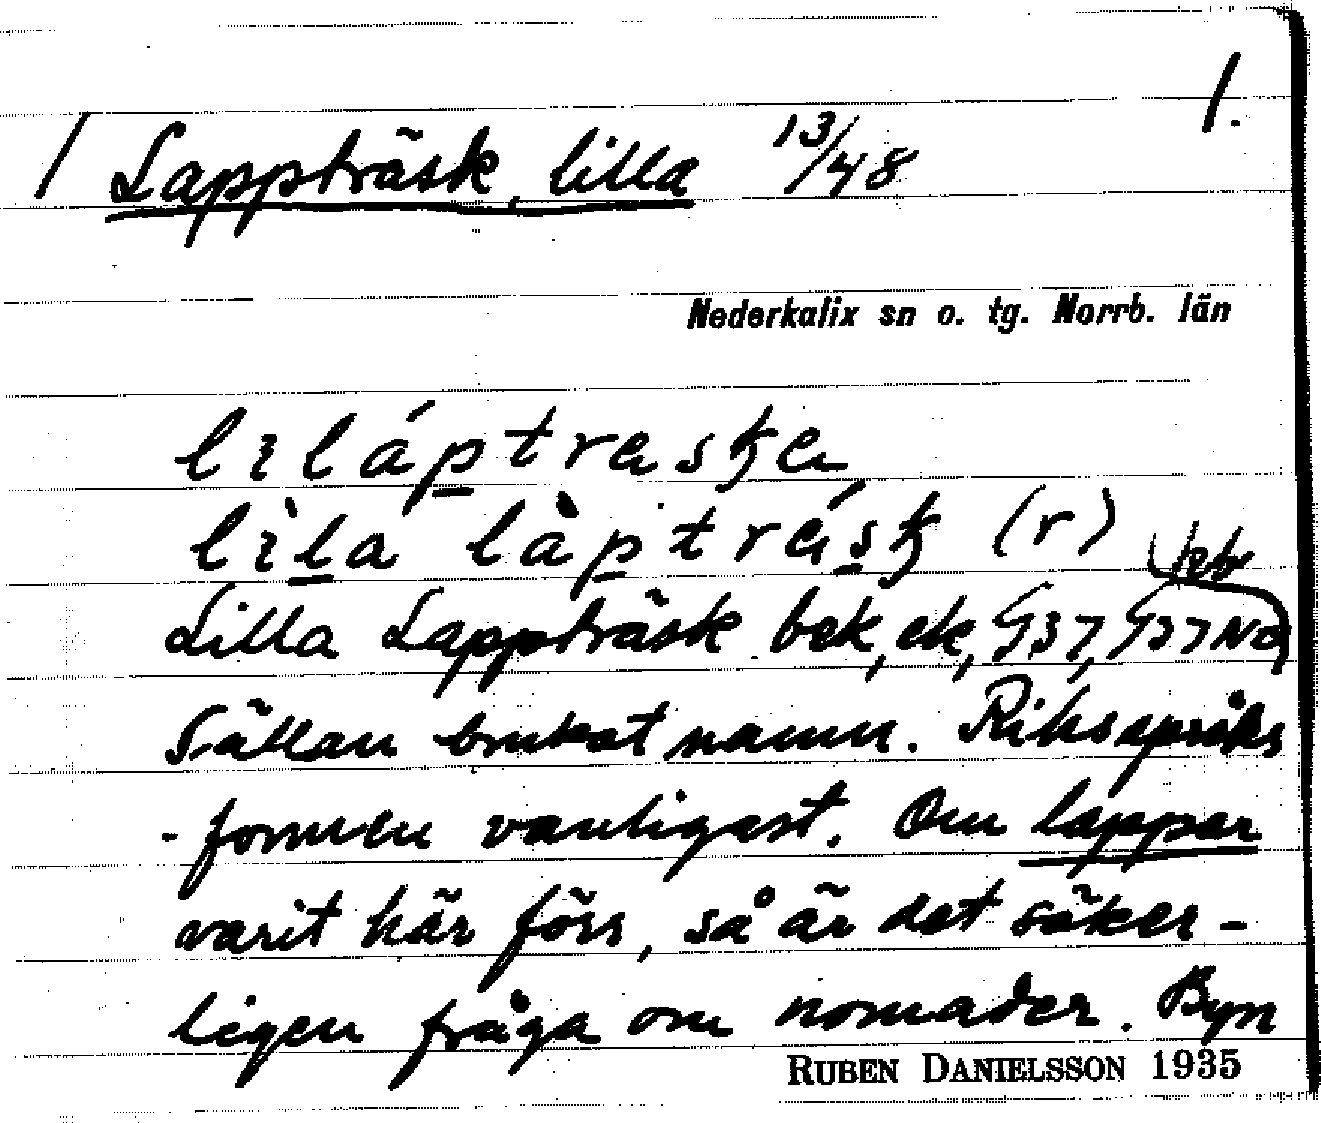 1.
/ Lappträsk, lilla 13/48
Nederkalix sn o. tg. Norrb. län
lıláptraska
lìla làptrásk (r)
Lilla Lappträsk bek, ek, G37, G37NO
Sällan brukat namn. Riksspråks
-formen vanligast. Om lappar
varit här förr, så är det säker-
ligen fråga om nomader. Byn
RUBEN DANIELSSON 1935